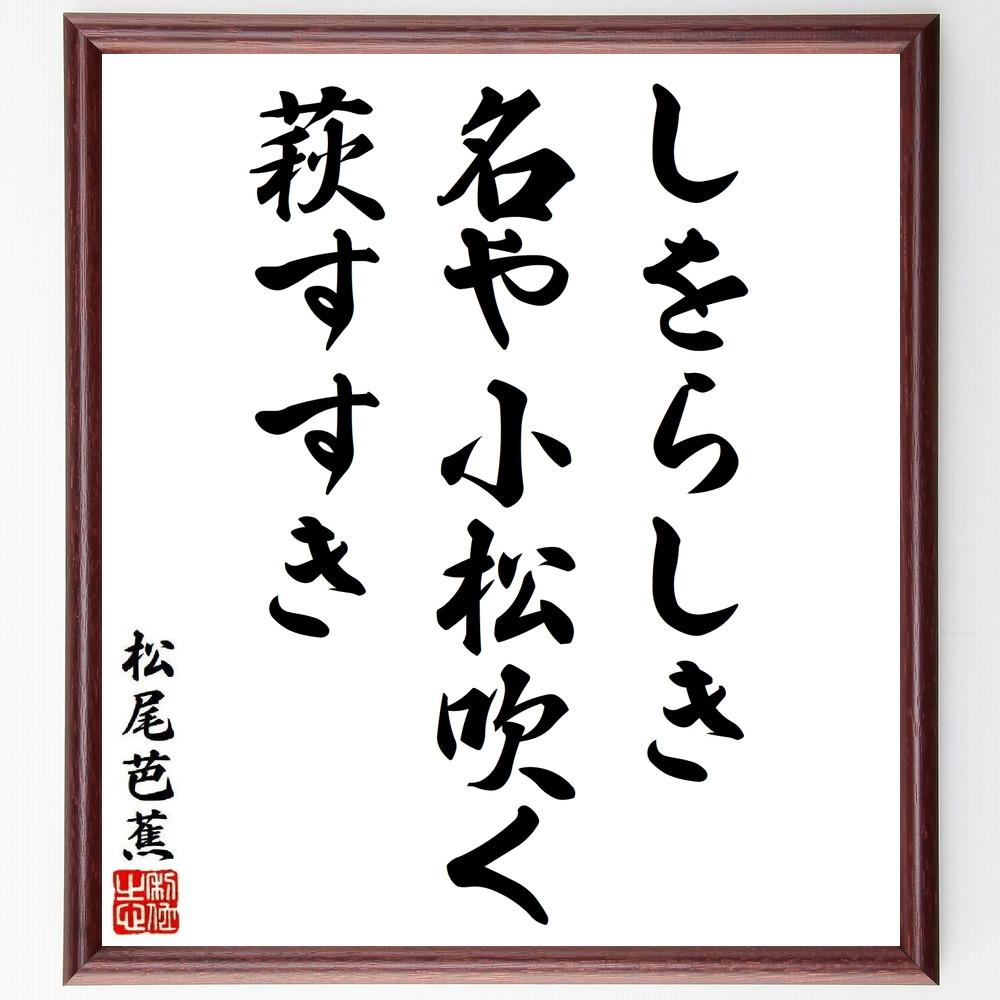 しをらしき
名や小松吹く
萩すすき
松尾芭蕉